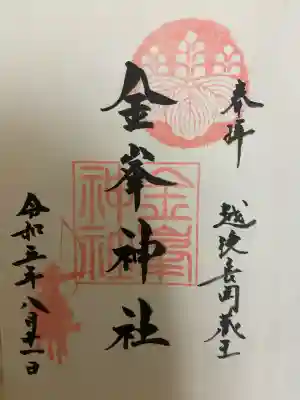 奉拝
越後長岡蔵王
金峯神社
金峯
神社
令和五年八月十一日